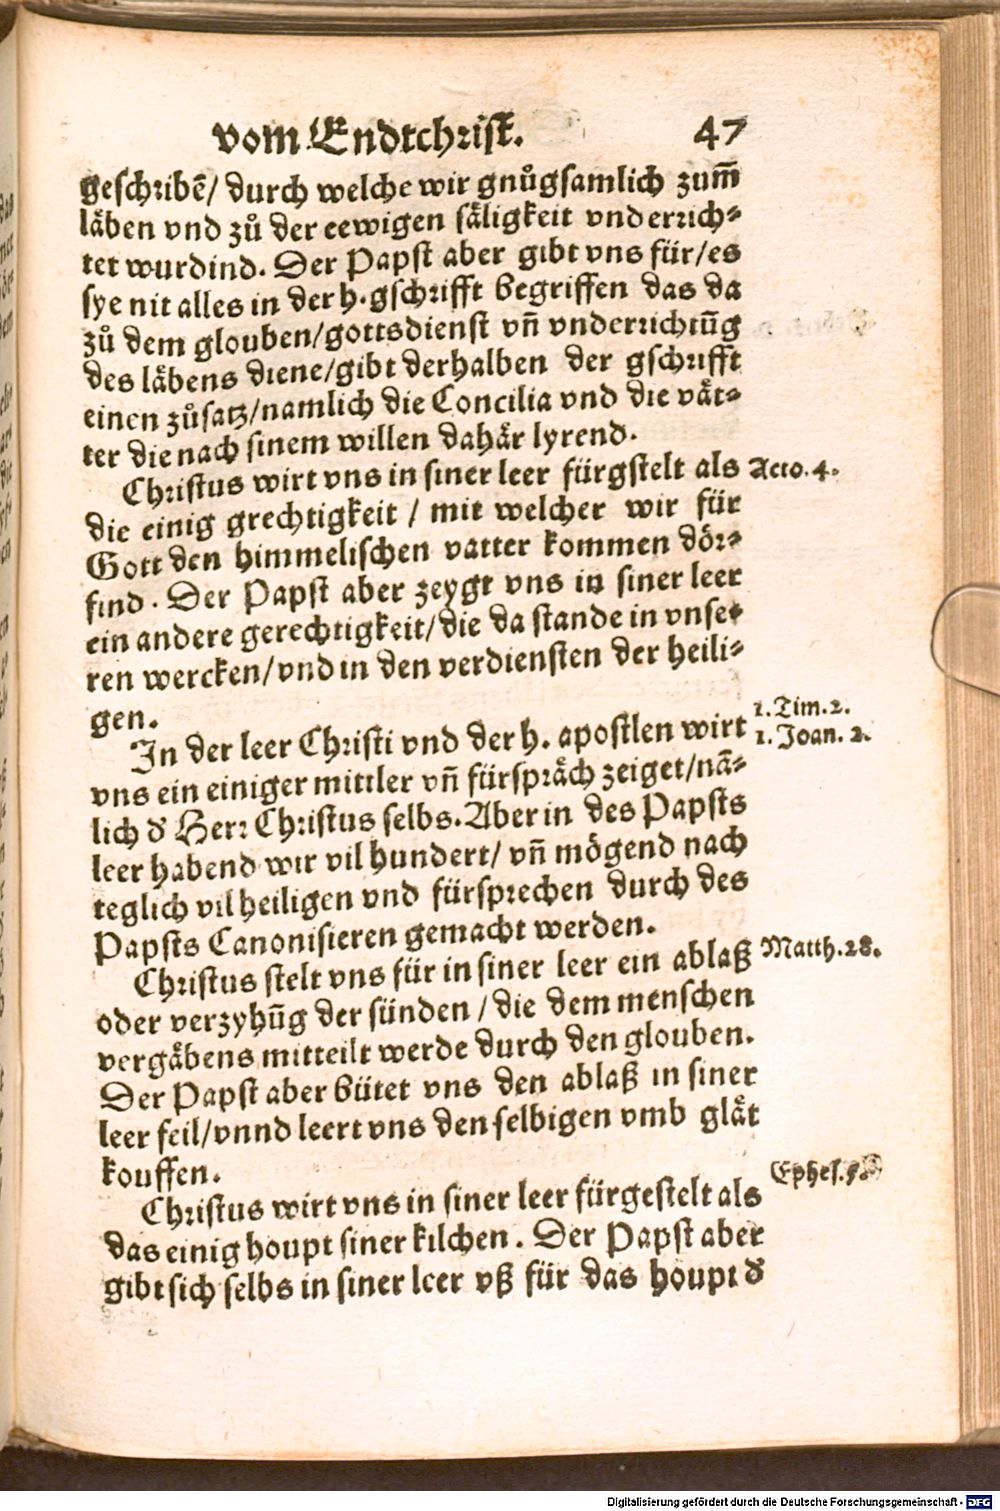 vom Endtchrist. 47
geschribē/ durch welche wir gnůgsamlich zum̄
läben vnd zů der eewigen säligkeit vnderrich⸗
tet wurdind. Der Papst aber gibt vns für/es
sye nit alles in der h. gschrifft begriffen das da
zů dem glouben/gottsdienst vn̄ vnderrichtūg
des läbens diene/gibt derhalben der gschrifft
einen zůsatz/namlich die Concilia vnd die vät⸗
ter die nach sinem willen dahär lyrend.
Christus wirt vns in siner leer fürgstelt als Acto. 4.
die einig grechtigkeit / mit welcher wir für
Gott den himmelischen vatter kommen dör⸗
find. Der Papst aber zeygt vns in siner leer
ein andere gerechtigkeit/die da stande in vnse⸗
ren wercken/vnd in den verdiensten der heili⸗
gen.
1. Tim. 2.
In der leer Christi vnd der h. apostlen wirt 1. Joan. 2.
vns ein einiger mittler vn̄ fürspräch zeiget/nā⸗
lich d' Herr Christus selbs. Aber in des Papsts
leer habend wir vil hundert/ vn̄ mögend nach
teglich vil heiligen vnd fürsprechen durch des
Papsts Canonisieren gemacht werden.
Christus stelt vns für in siner leer ein ablaß Matth. 28.
oder verzyhūg der sünden / die dem menschen
vergäbens mitteilt werde durch den glouben.
Der Papst aber bütet vns den ablaß in siner
leer feil/vnnd leert vns den selbigen vmb glät
kouffen.
Christus wirt vns in siner leer fürgestelt als Ephes.
das einig houpt siner kilchen. Der Papst aber
gibt sich selbs in siner leer vß für das houpt d'
Digitalisierung gefördert durch die Deutsche Forschungsgemeinschaft - DFG